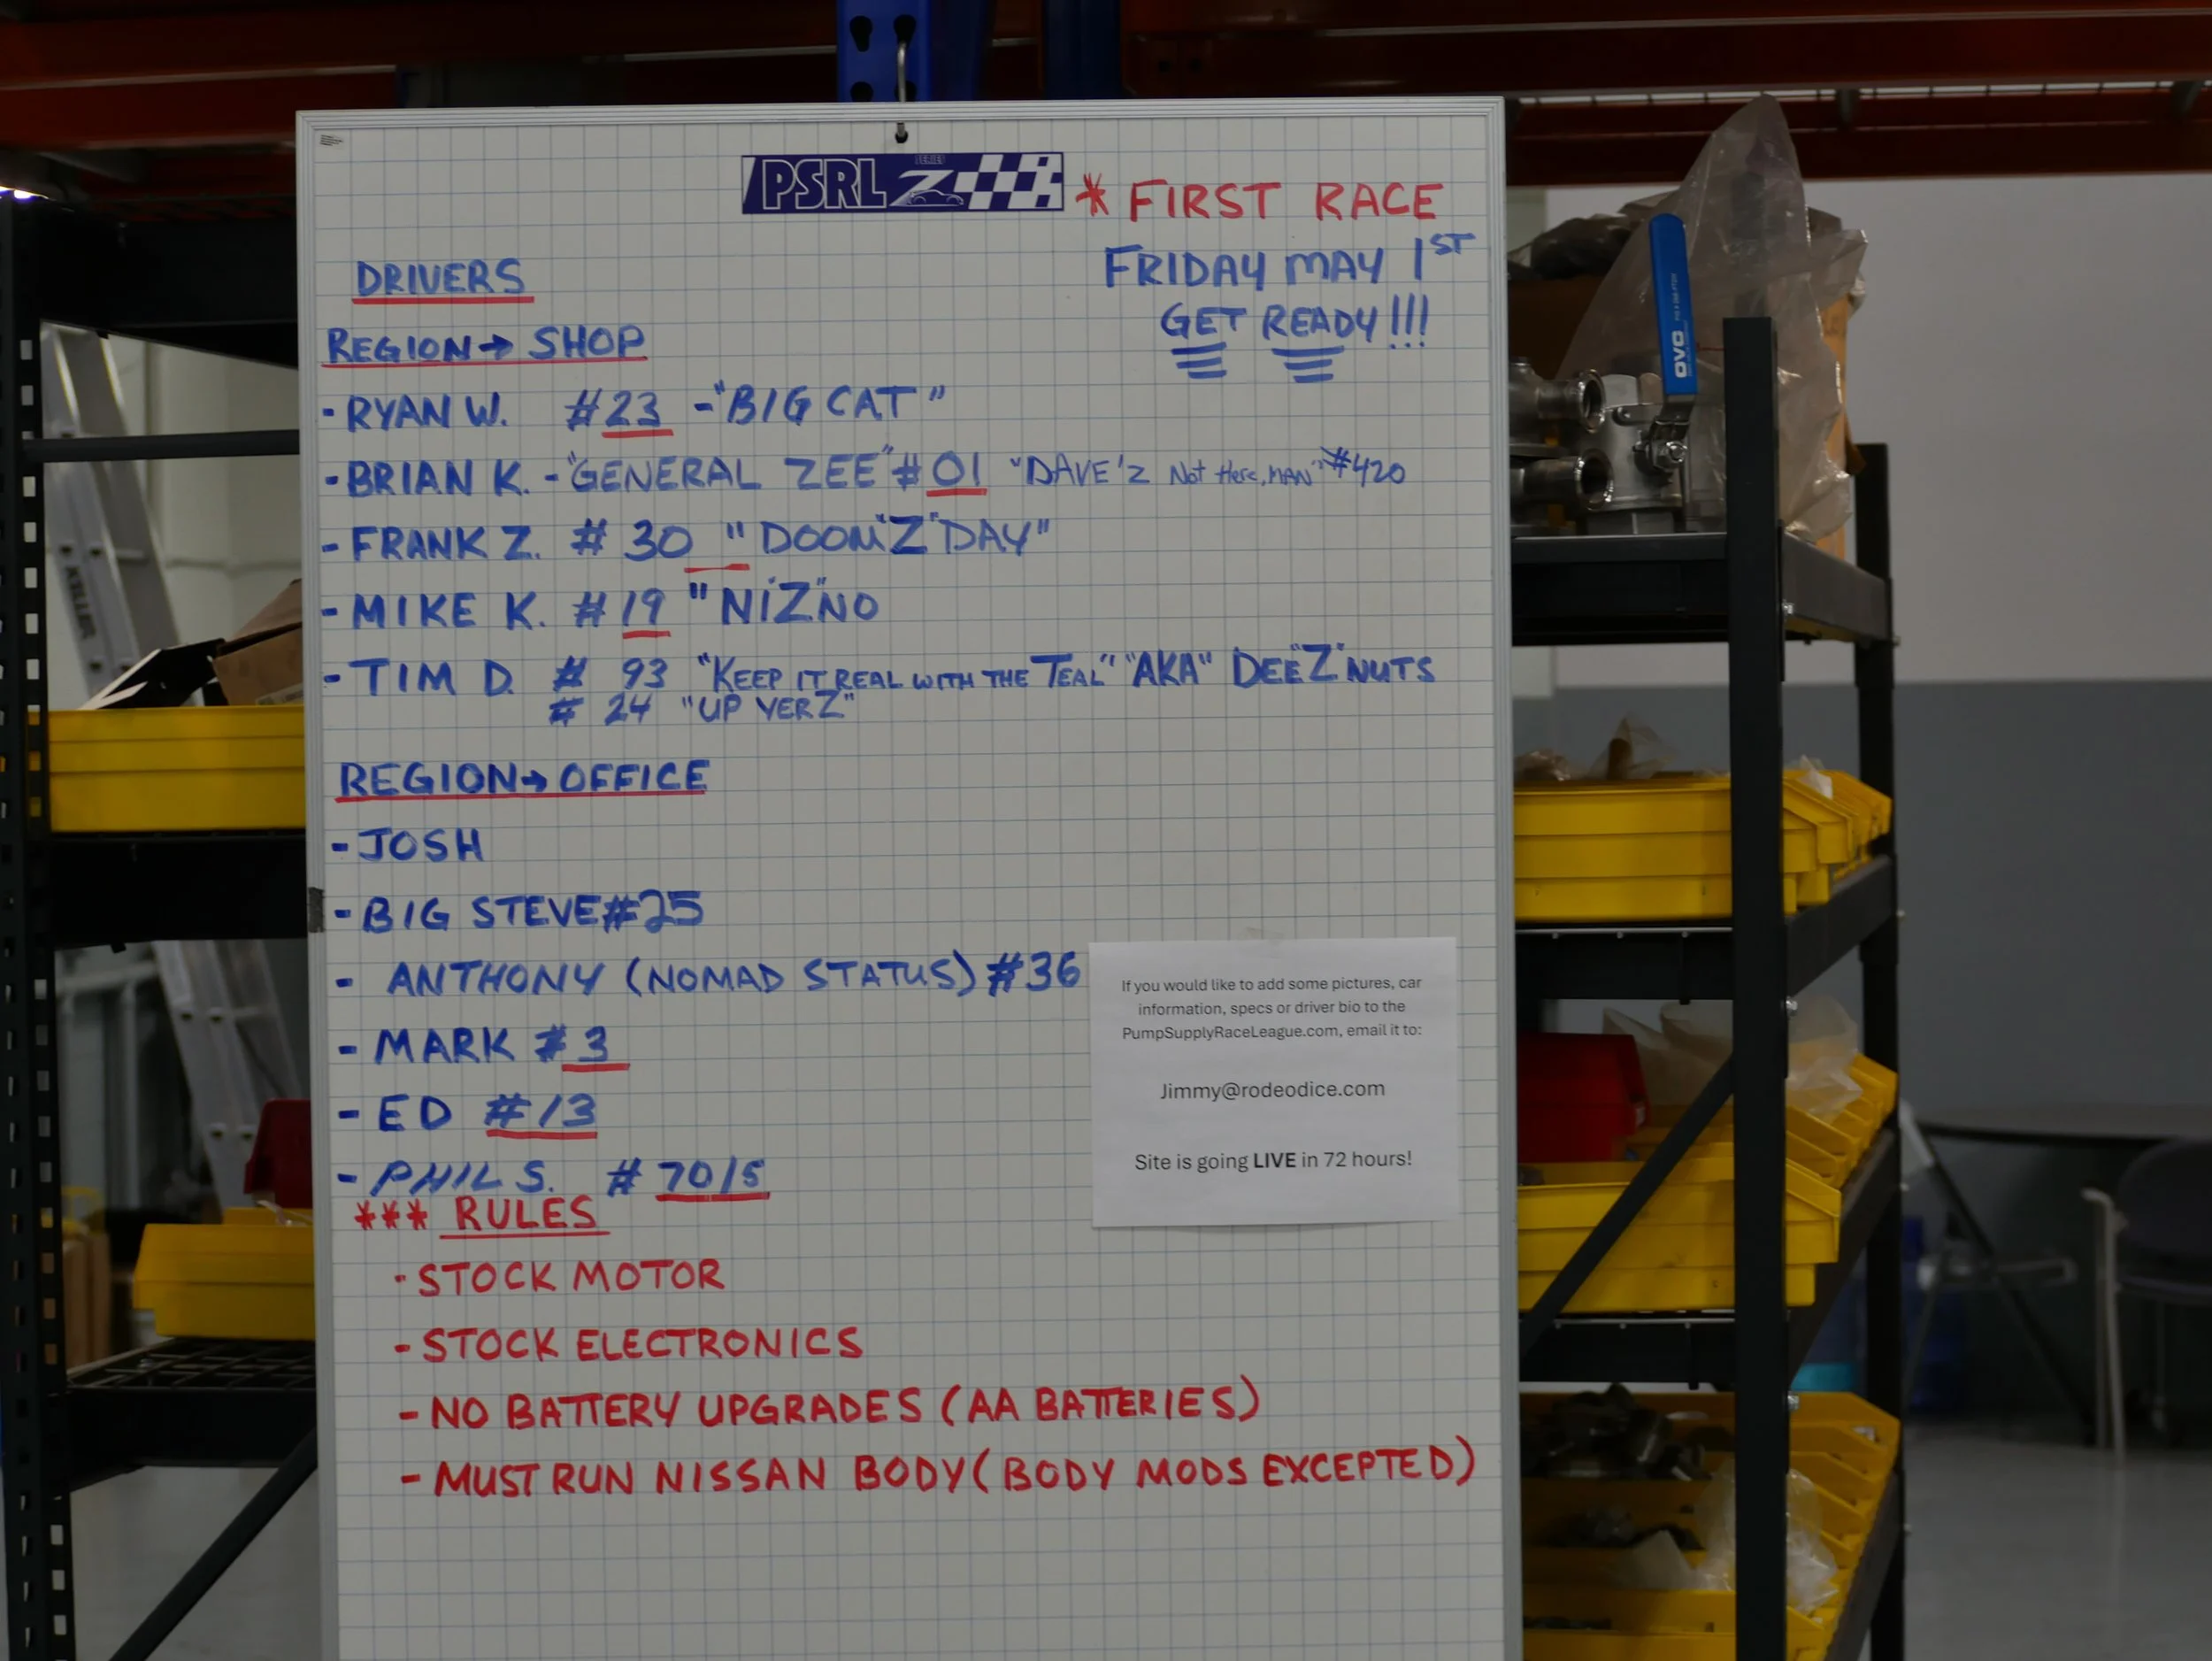 PSRL SERIES Z
* FIRST RACE
FRIDAY MAY 1ST
GET READY!!!
DRIVERS
REGION→ SHOP
- RYAN W. #23 -"BIG CAT"
- BRIAN K. - "GENERAL ZEE" #01 "DAVE'Z Not Here, MAN" #420
- FRANK Z. # 30 "DOOM"Z"DAY"
- MIKE K. #19 "NI"Z"NO
- TIM D. # 93 "KEEP IT REAL WITH THE TEAL" "AKA" DEE"Z"NUTS
# 24 "UP YERZ"
REGION→ OFFICE
- JOSH
- BIG STEVE #25
- ANTHONY (NOMAD STATUS) #36
- MARK #3
- ED #13
- PHIL S. # 70/5
*** RULES
- STOCK MOTOR
- STOCK ELECTRONICS
- NO BATTERY UPGRADES (AA BATTERIES)
- MUST RUN NISSAN BODY (BODY MODS EXCEPTED)
If you would like to add some pictures, car
information, specs or driver bio to the
PumpSupplyRaceLeague.com, email it to:
Jimmy@rodeodice.com
Site is going LIVE in 72 hours!
OVC